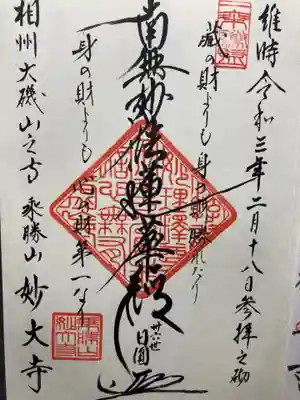 維時令和三年二月十八日参拝之砌
蔵の財よりも身の財勝れたり
南無妙法蓮華経
卅六世
日圓
身の財よりも心の財第一なり
相州大磯山之寺 乘勝山 妙大寺